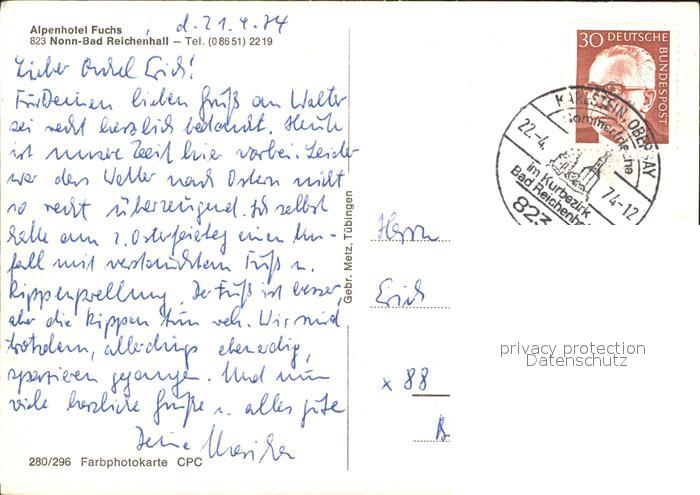 Alpenhotel Fuchs, d. 21.4.74
823 Nonn-Bad Reichenhall – Tel. (08651) 2219
Lieber Onkel Erich!
Für Deinen lieben Gruß an Walter
sei recht herzlich bedankt. Heute
ist unsere Zeit hier vorbei. Leider
war das Wetter nach Ostern nicht
so recht überzeugend. Ich selbst
hatte am 2. Osterfeiertag einen Un-
fall mit verstauchtem Fuß u.
Rippenprellung. Der Fuß ist besser,
aber die Rippen tun weh. Wir sind
trotzdem, allerdings ebenerdig,
spazieren gegangen. Und nun
viele herzliche Grüße u. alles gute
Deine
280/296 Farbphotokarte CPC
Gebr. Metz, Tübingen
30 DEUTSCHE BUNDESPOST
KARLSTEIN, OBERBAY
Sommerfrische
22.-4. 74-12
im Kurbezirk
Bad Reichenhall
823
Herrn
Erich
x 88
B
privacy protection
Datenschutz